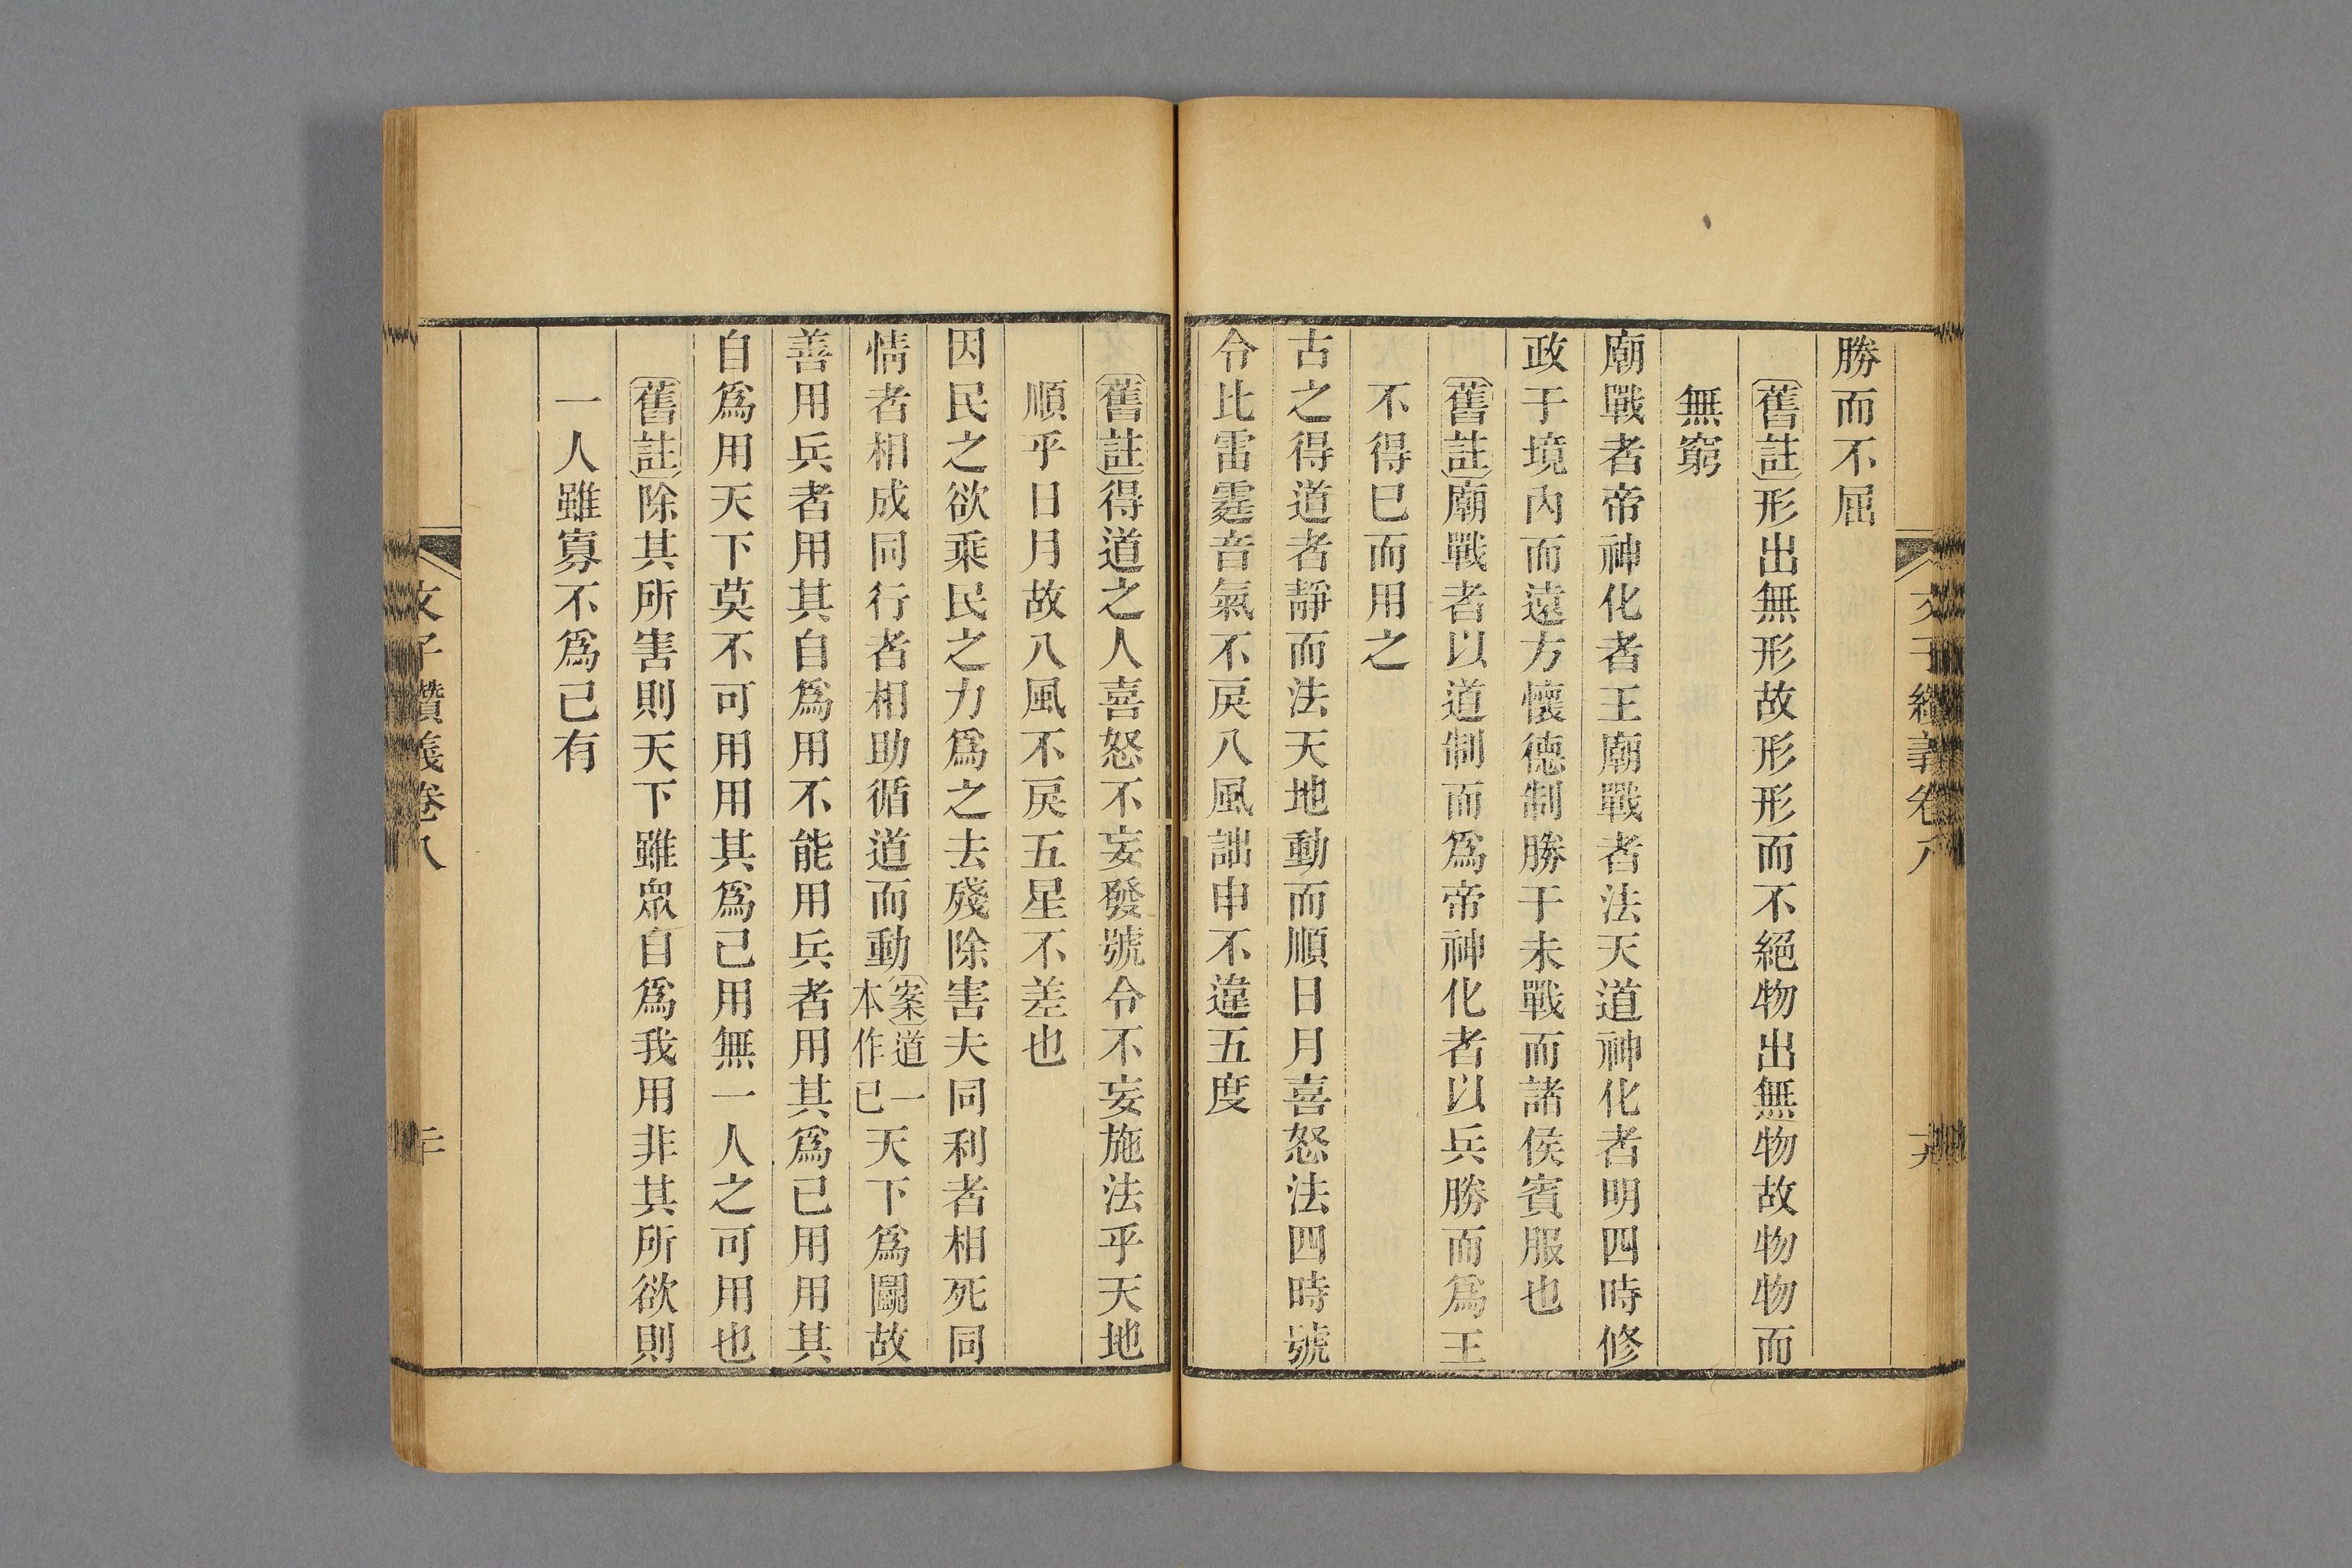 文子纘義卷八
十九
勝而不屈
舊註形出無形故形形而不絕物出無物故物物而
無窮
廟戰者帝神化者王廟戰者法天道神化者明四時修
政于境內而遠方懷德制勝于未戰而諸侯賓服也
舊註廟戰者以道制而爲帝神化者以兵勝而爲王
不得已而用之
古之得道者靜而法天地動而順日月喜怒法四時號
令比雷霆音氣不戾八風詘申不違五度
舊註得道之人喜怒不妄發號令不妄施法乎天地
順乎日月故八風不戾五星不差也
因民之欲乘民之力爲之去殘除害夫同利者相死同
情者相成同行者相助循道而動案道一本作已天下爲鬭故
善用兵者用其自爲用不能用兵者用其爲己用用其
自爲用天下莫不可用用其爲己用無一人之可用也
舊註除其所害則天下雖眾自爲我用非其所欲則
一人雖寡不爲已有
文子纘義卷八
二十